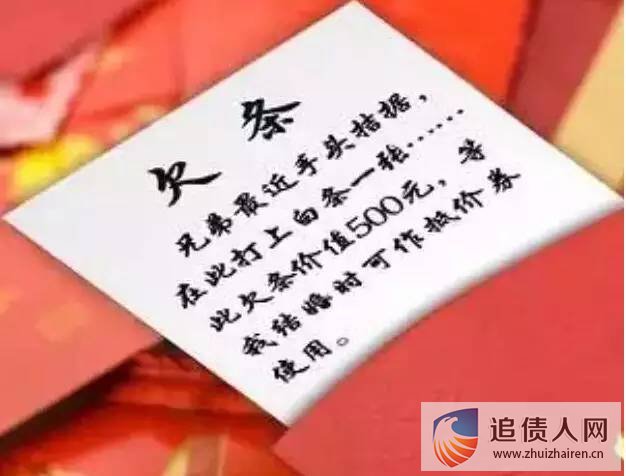 欠条
兄弟最近手头拮据，
在此打上白条一张……
此欠条价值500元，等
我结婚时可作抵价券
使用。
追债人网
www.zhuizhairen.cn